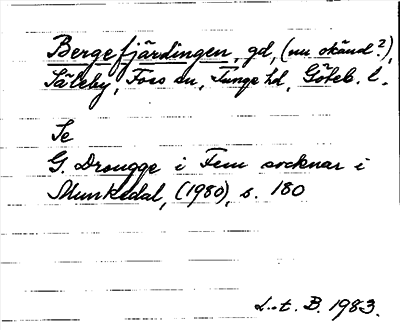 Bergefjärdingen, gd, (nu okänd?),
Säleby, Foss sn, Tunge hd, Göteb. l.
Se
G. Drougge i Fem socknar i
Munkedal, (1980), s. 180
L-t. B. 1983.